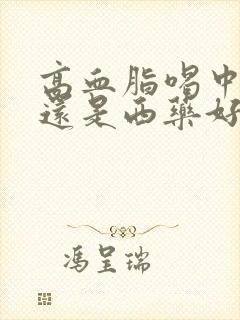 高血脂喝中
還是西藥好
馮呈瑞